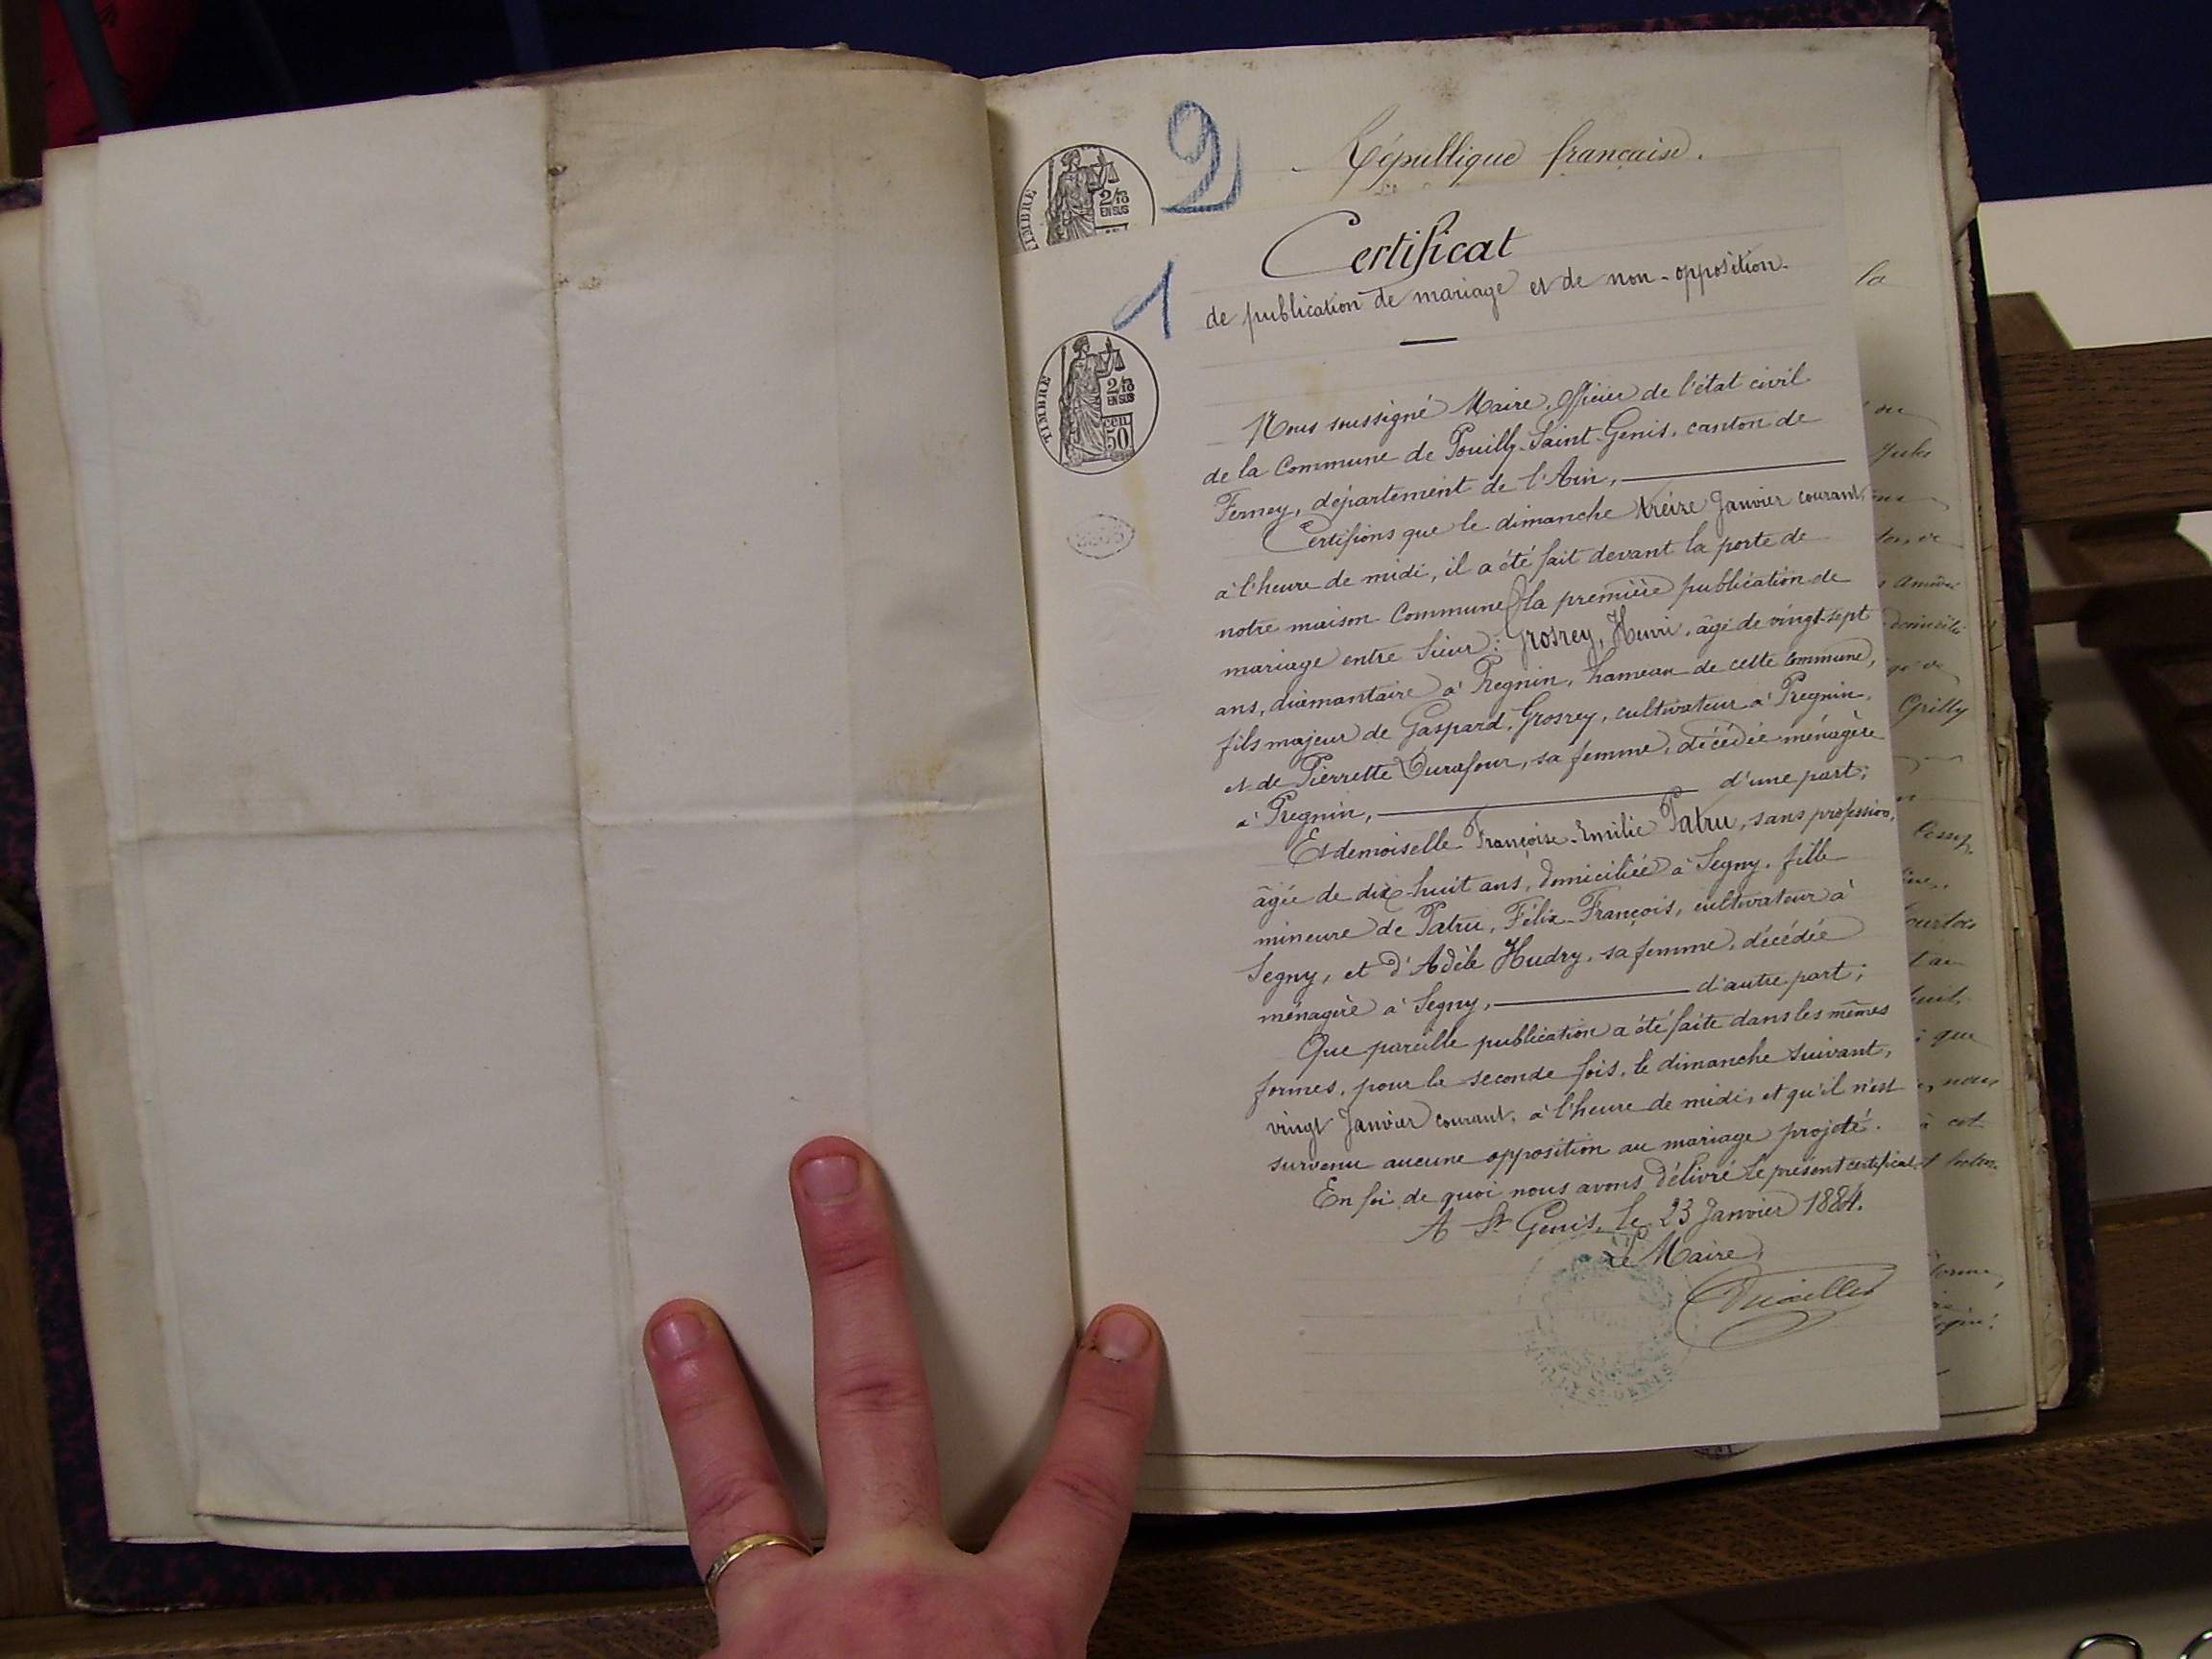 2
République française.
1
Certificat
de publication de mariage et de non-opposition.
TIMBRE
2/10
EN SUS
TIMBRE
2/10
EN SUS
cen
50
Nous soussigné Maire, Officier de l'état civil
de la Commune de Pouilly-Saint-Genis, canton de
Ferney, département de l'Ain,
Certifions que le dimanche treize Janvier courant
à l'heure de midi, il a été fait devant la porte de
notre maison Commune la première publication de
mariage entre Sieur: Grosrey, Henri, âgé de vingt-sept
ans, diamantaire à Pregnin, hameau de cette commune,
fils majeur de Gaspard Grosrey, cultivateur à Pregnin,
et de Pierrette Durafour, sa femme, décédée ménagère
à Pregnin, d'une part;
Et demoiselle Françoise-Emilie Patru, sans profession,
âgée de dix-huit ans, domiciliée à Segny, fille
mineure de Patru, Félix-François, cultivateur à
Segny, et d'Adèle Hudry, sa femme, décédée
ménagère à Segny, d'autre part;
Que pareille publication a été faite dans les mêmes
formes, pour la seconde fois, le dimanche suivant,
vingt Janvier courant, à l'heure de midi, et qu'il n'est
survenu aucune opposition au mariage projeté.
En foi de quoi nous avons délivré le présent certificat
A St Genis, le 23 Janvier 1884.
Le Maire,
la
Grilly
que
à cet